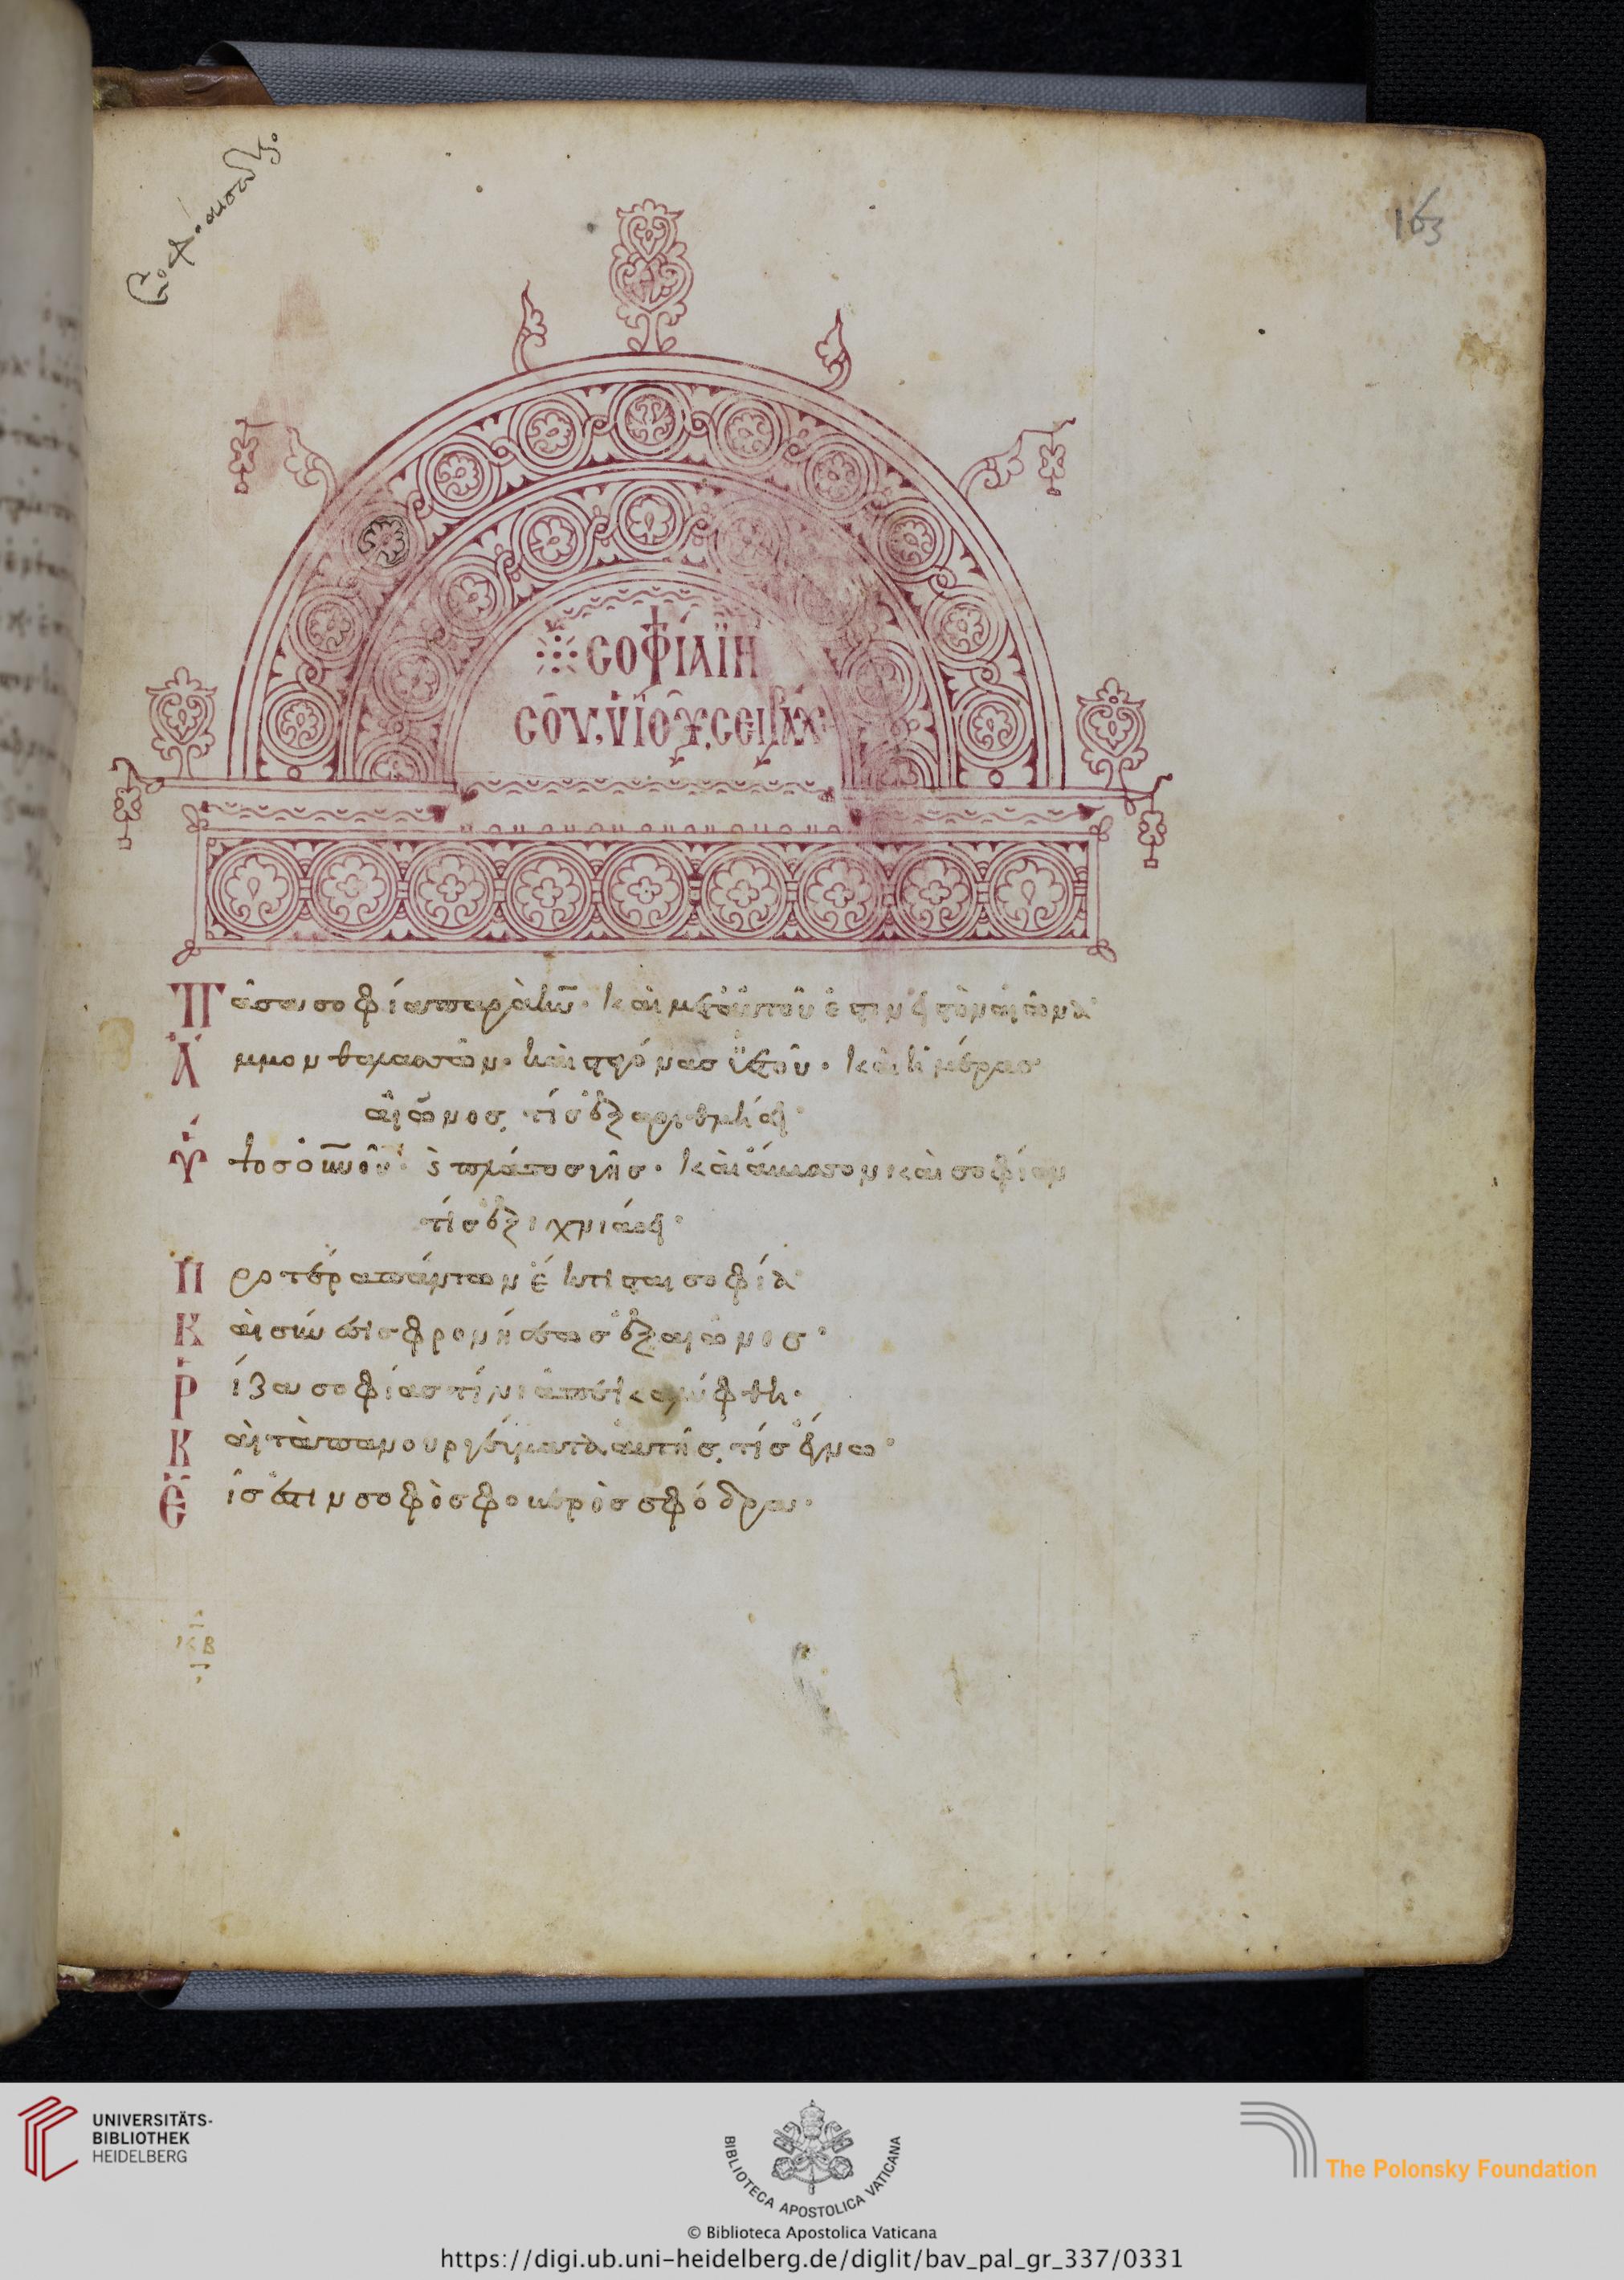 163
σοφία ϊη
σοῦ, ϋϊοῦ σειράχ
Πᾶσα σοφία παρὰ κ̅υ̅· καὶ μετ' αὐτοῦ ἐστιν εἰς τὸν αἰῶνα·
Ἄμμον θαλασσῶν· καὶ σταγόνας ϋετοῦ· καὶ ἡμέρας
αἰῶνος, τίς ἐξαριθμήσει·
Ὕψος οὐνοῦ· πλάτος γῆς· καὶ ἄβυσσον καὶ σοφίαν
τίς ἐξιχνιάσει·
Προτέρα πάντων ἔκτισται σοφία·
Καὶ σύνεσις φρονήσεως ἐξ αἰῶνος·
Ῥίζα σοφίας τίνι ἀπεκαλύφθη·
Καὶ τὰ πανουργεύματα αὐτῆς, τίς ἔγνω·
Εἷς ἐστιν σοφὸς φοβερὸς σφόδρα·
κβ
UNIVERSITÄTS-
BIBLIOTHEK
HEIDELBERG
BIBLIOTECA APOSTOLICA VATICANA
The Polonsky Foundation
© Biblioteca Apostolica Vaticana
https://digi.ub.uni-heidelberg.de/diglit/bav_pal_gr_337/0331